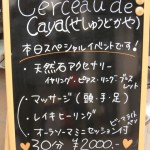 Cerceau de
Caya(せしゅうどかや)
本日スペシャルイベントです!
・天然石アクセサリー
イヤリング・ピアス・リング・ブレス
レット
・マッサージ(頭・手・足)
・レイキヒーリング
ビッフライト
オーラソーマミニセッション付
30分 ¥2000.-